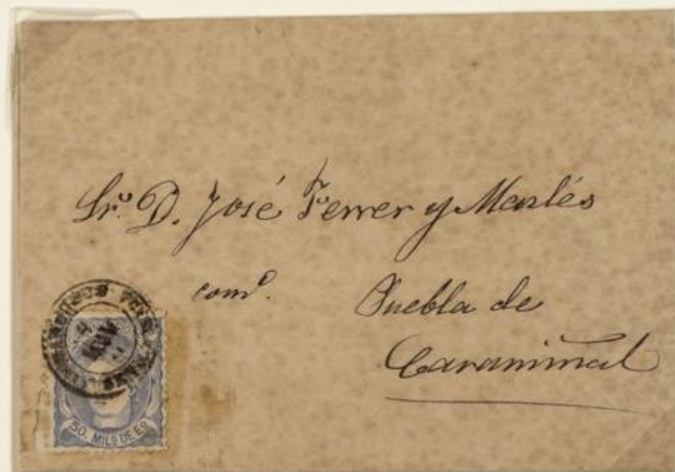 Sr. D. José Ferrer y Marlés
com.º
Puebla de
Caramiñal
50. MILS DE Eº